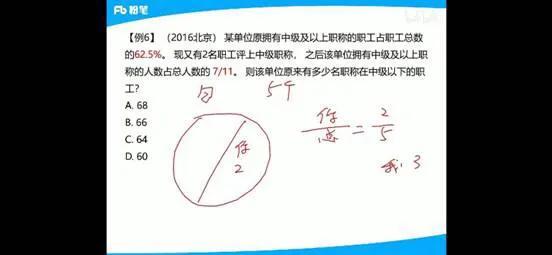 Fb 粉笔
【例6】（2016北京）某单位原拥有中级及以上职称的职工占职工总数
的62.5%。现又有2名职工评上中级职称，之后该单位拥有中级及以上职
称的人数占总人数的 7/11。则该单位原来有多少名职称在中级以下的职
工？
A. 68
B. 66
C. 64
D. 60
5个
你
2
你/总 = 2/5
我: 3